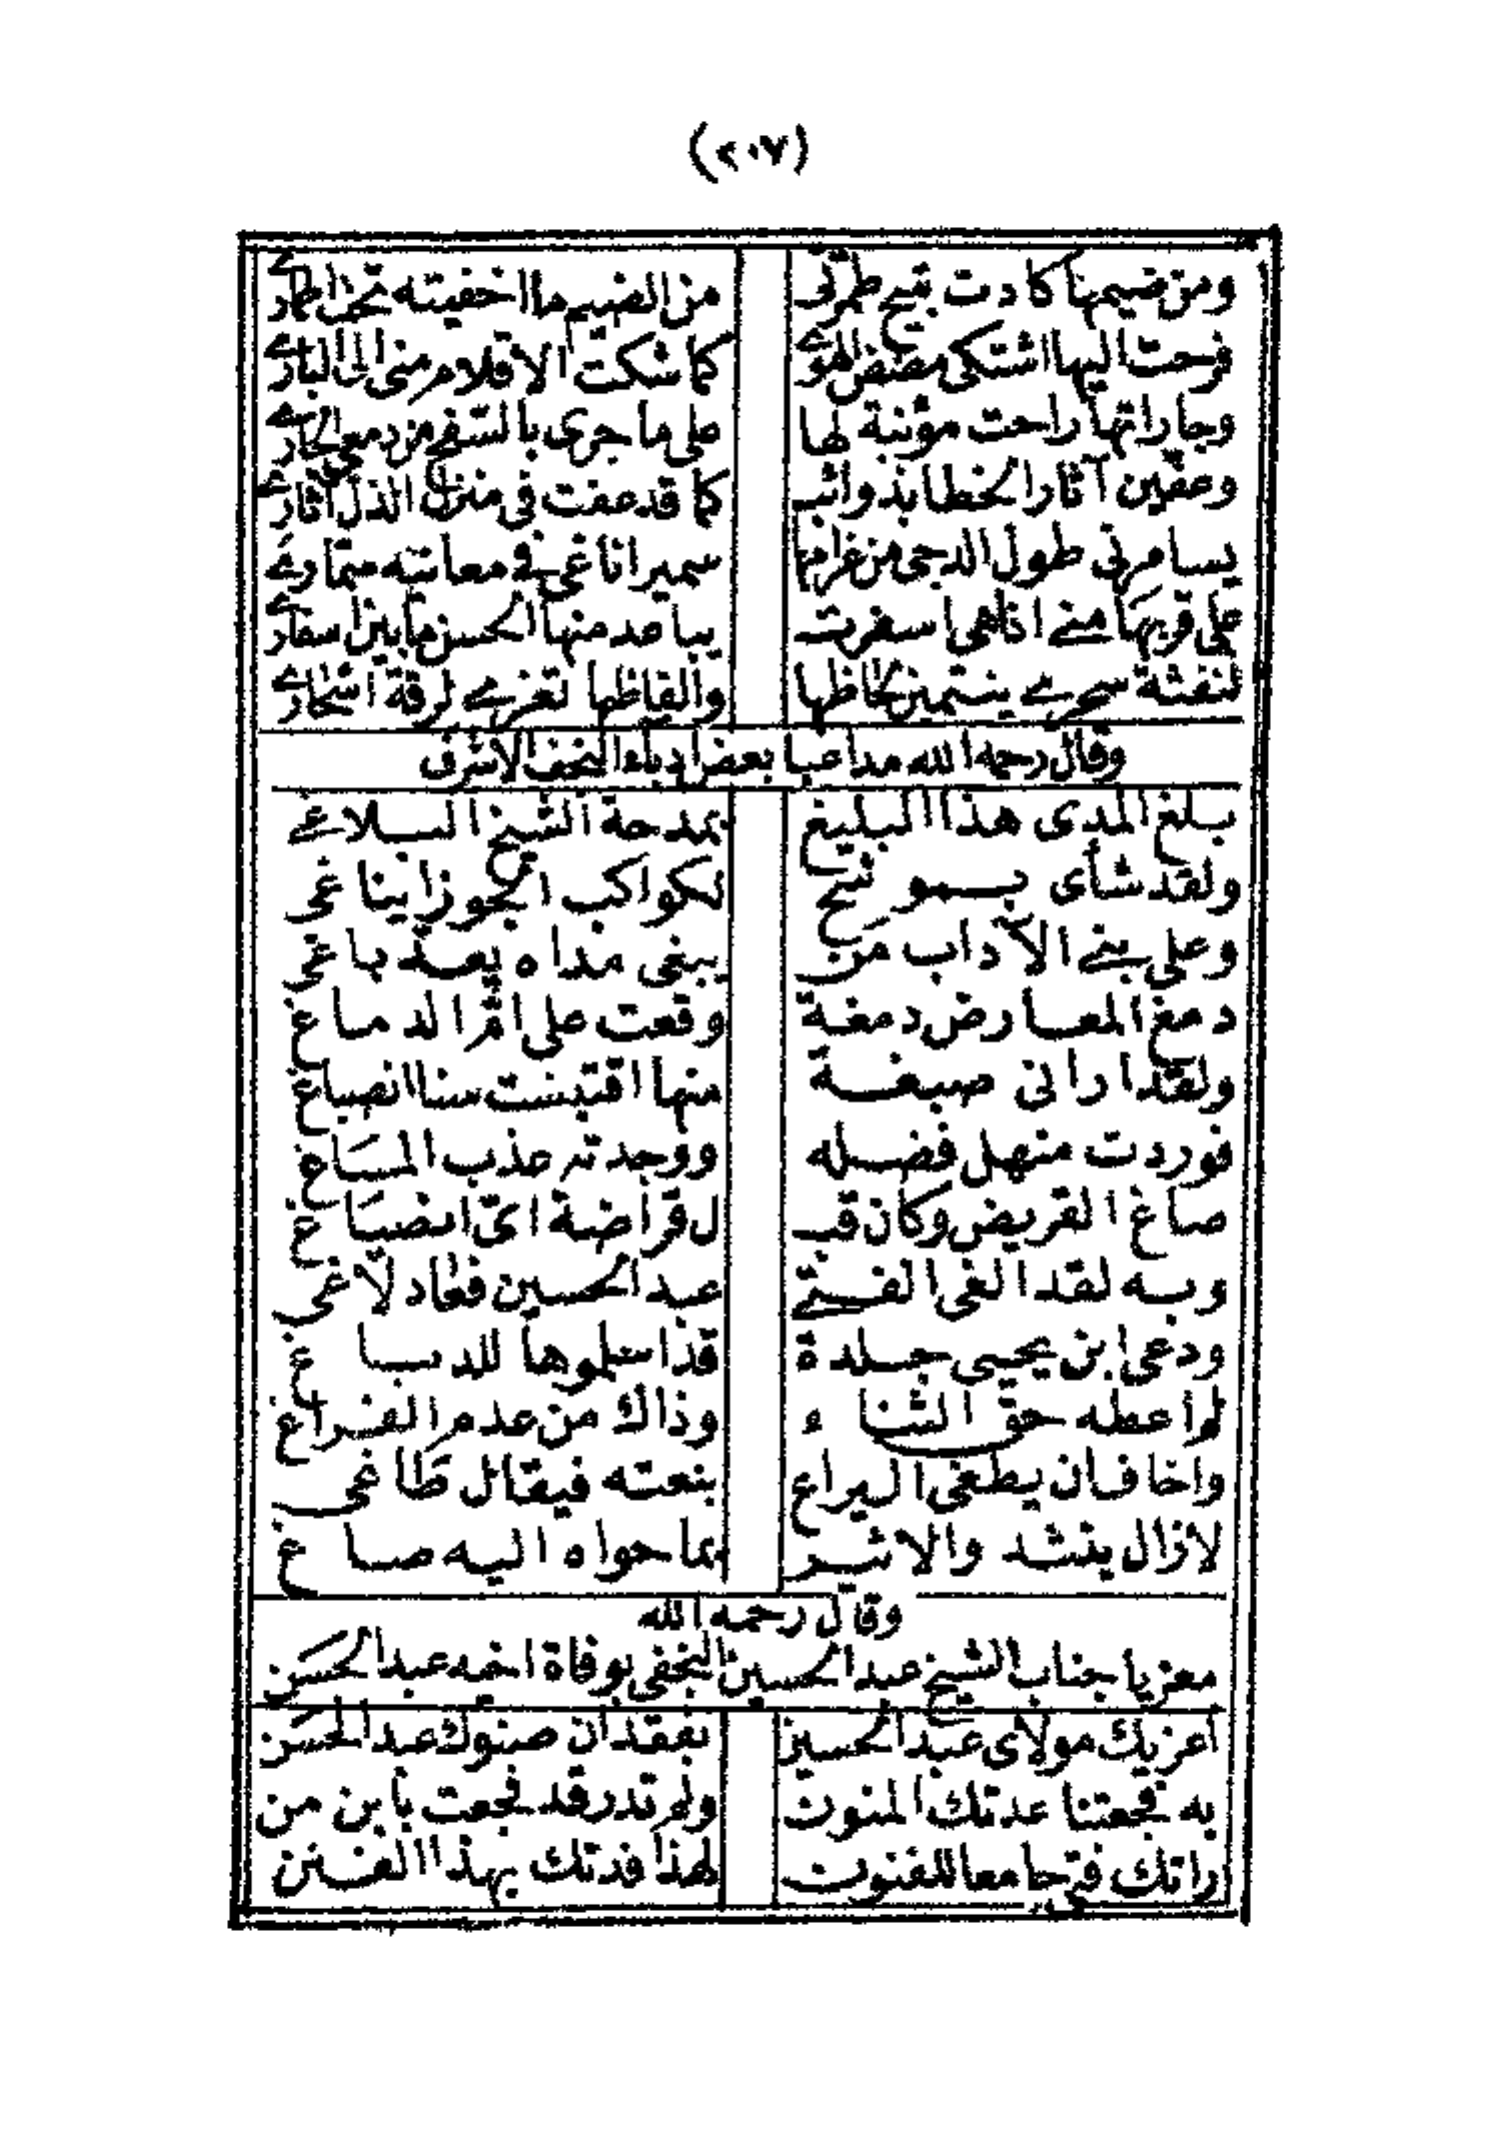 (٢٠٧)
ومن ضيمها كادت تبيح طمرتى من الضيم ما اخفيته تحت اطمارے
فرحت اليها اشتكى مضض الهوے كما شكت الاقلام منى الى البارے
وجاراتها راحت مؤنبة لها على ما جرى بالسفح من دمعى الجارے
وعفين آثار الخطا بذوائب كما قد عفت فى منزل الذل آثارے
يسامرنى طول الدجى من غرامها سميرا ناغى فے معانيه سمّارے
على قربها منے اذا هى اسفرت يباعد منها الحسن ما بين اسفارے
لنفثة سحرے ينتمين لحاظها والفاظها تعزے لرقة اشعارے
وقال رحمه الله مداعبا بعض ادباء النجف الاشرف
بلغ المدى هذا البليغ بمدحة الشيخ السلاغے
ولقد شأى بسمو تيح لكواكب الجوزا يناغى
وعلى بنے الآداب من يبغى مداه يعدّ باغى
دمغ المعارض دمغة وقعت على امّ الدماغ
ولقد ارانى صبغة منها اقتبست سنا انصباغ
فوردت منهل فضله ووجدته عذب المساغ
صاغ القريض وكان قب ل قراضة اىّ انصياغ
وبه لقد الغى الفتے عبد الحسين فعاد لاغى
ودعى ابن يحيى جلدة قد اسلموها للدباغ
لم اعطه حق الثناء وذاك من عدم الفراغ
واخاف ان يطغى اليراع بنعته فيقال طاغى
لازال ينشد والاثير بما حواه اليه صاغ
وقال رحمه الله
معزيا جناب الشيخ عبد الحسين النجفى بوفاة اخيه عبد الحسن
اعزيك مولاى عبد الحسين بفقدان صنوك عبد الحسن
به فجعتنا عدتك المنون ولم تدر قد فجعت بابن من
راتك فتى جامعا للفنون لهذا فدتك بهذا الفنن